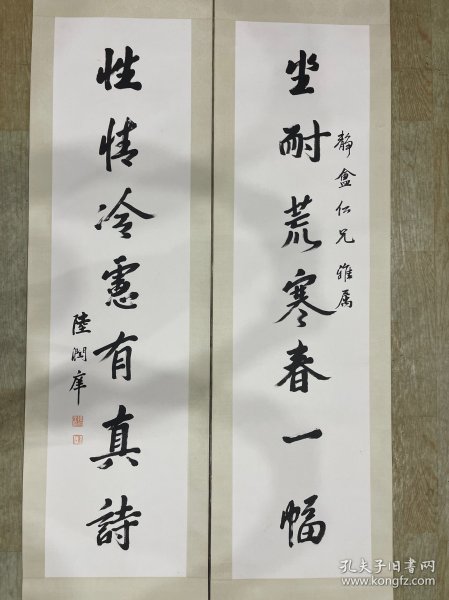 坐耐荒寒春一幅
静盦仁兄雅属
性情冷處有真詩
陸潤庠
孔夫子旧书网
www.kongfz.com